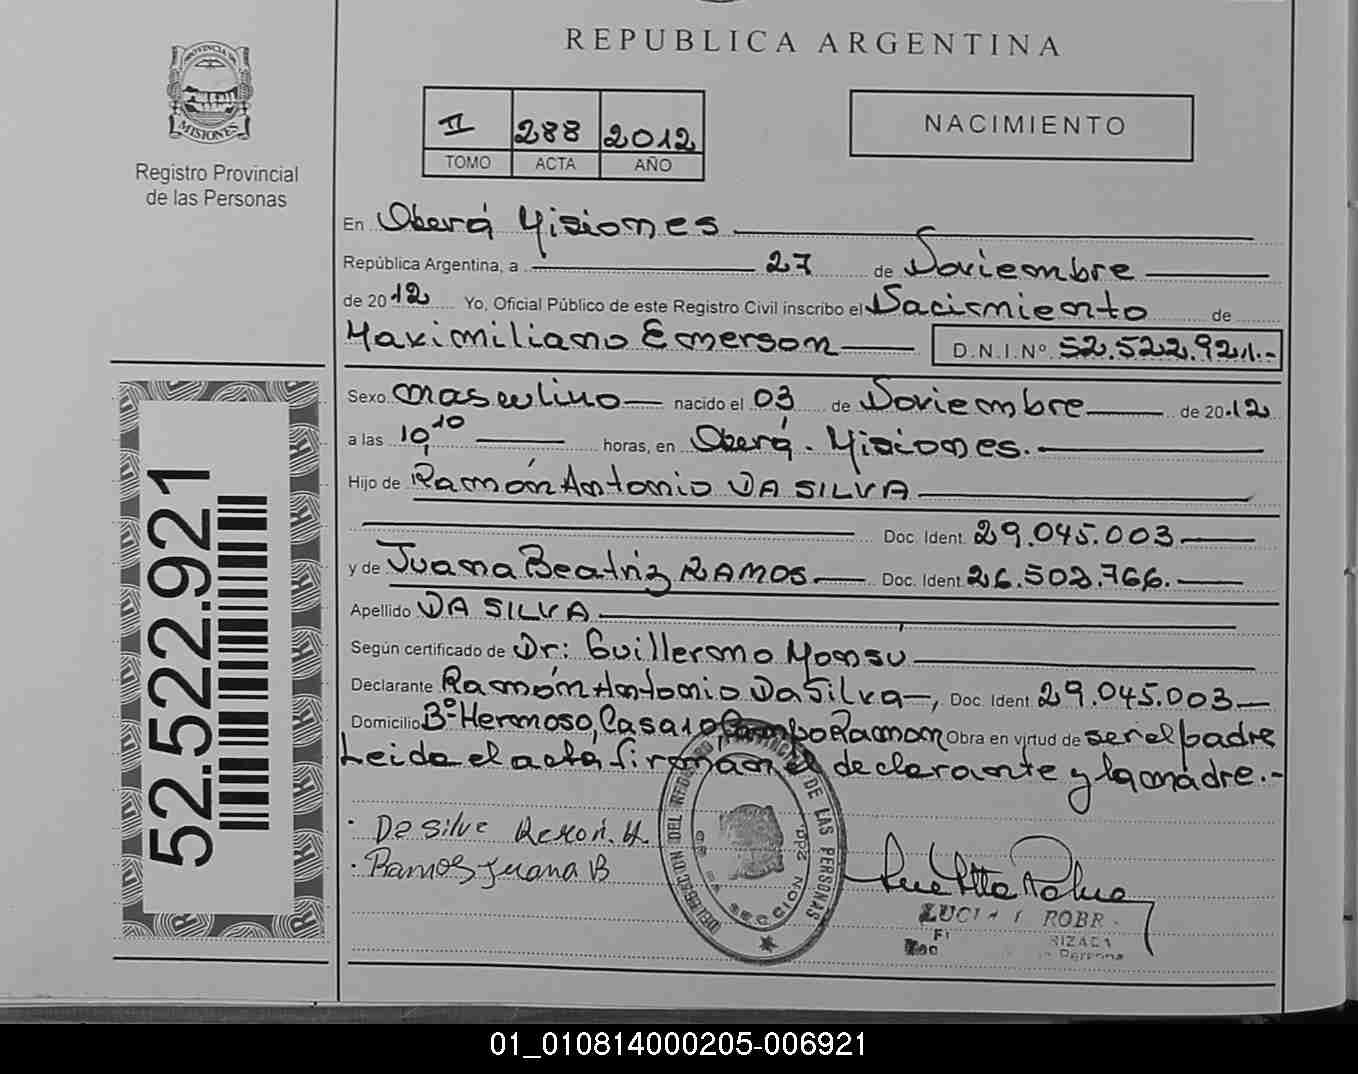 REPUBLICA ARGENTINA
PROVINCIA DE
MISIONES
Registro Provincial
de las Personas
II 288 2012
TOMO ACTA AÑO
NACIMIENTO
En Oberá Misiones
República Argentina, a 27 de Noviembre
de 2012 Yo, Oficial Público de este Registro Civil inscribo el Nacimiento de
Maximiliano Emerson D.N.I.Nº 52.522.921.-
Sexo masculino nacido el 03 de Noviembre de 2012
a las 19,10 horas, en Oberá. Misiones.
Hijo de Ramón Antonio DA SILVA
Doc. Ident. 29.045.003
y de Juana Beatriz RAMOS Doc. Ident. 26.502.766.
Apellido DA SILVA
Según certificado de Dr: Guillermo Monsu
Declarante Ramón Antonio Da Silva, Doc. Ident 29.045.003
Domicilio Bº Hermoso, Casa 10, Campo Ramon Obra en virtud de ser el padre
Leida el acta firman el declarante y la madre.-
Da Silva Ramon. A
Ramos Juana B
DELEGACION DEL REGISTRO PROVINCIAL DE LAS PERSONAS
2da. SECCION
52.522.921
01_010814000205-006921